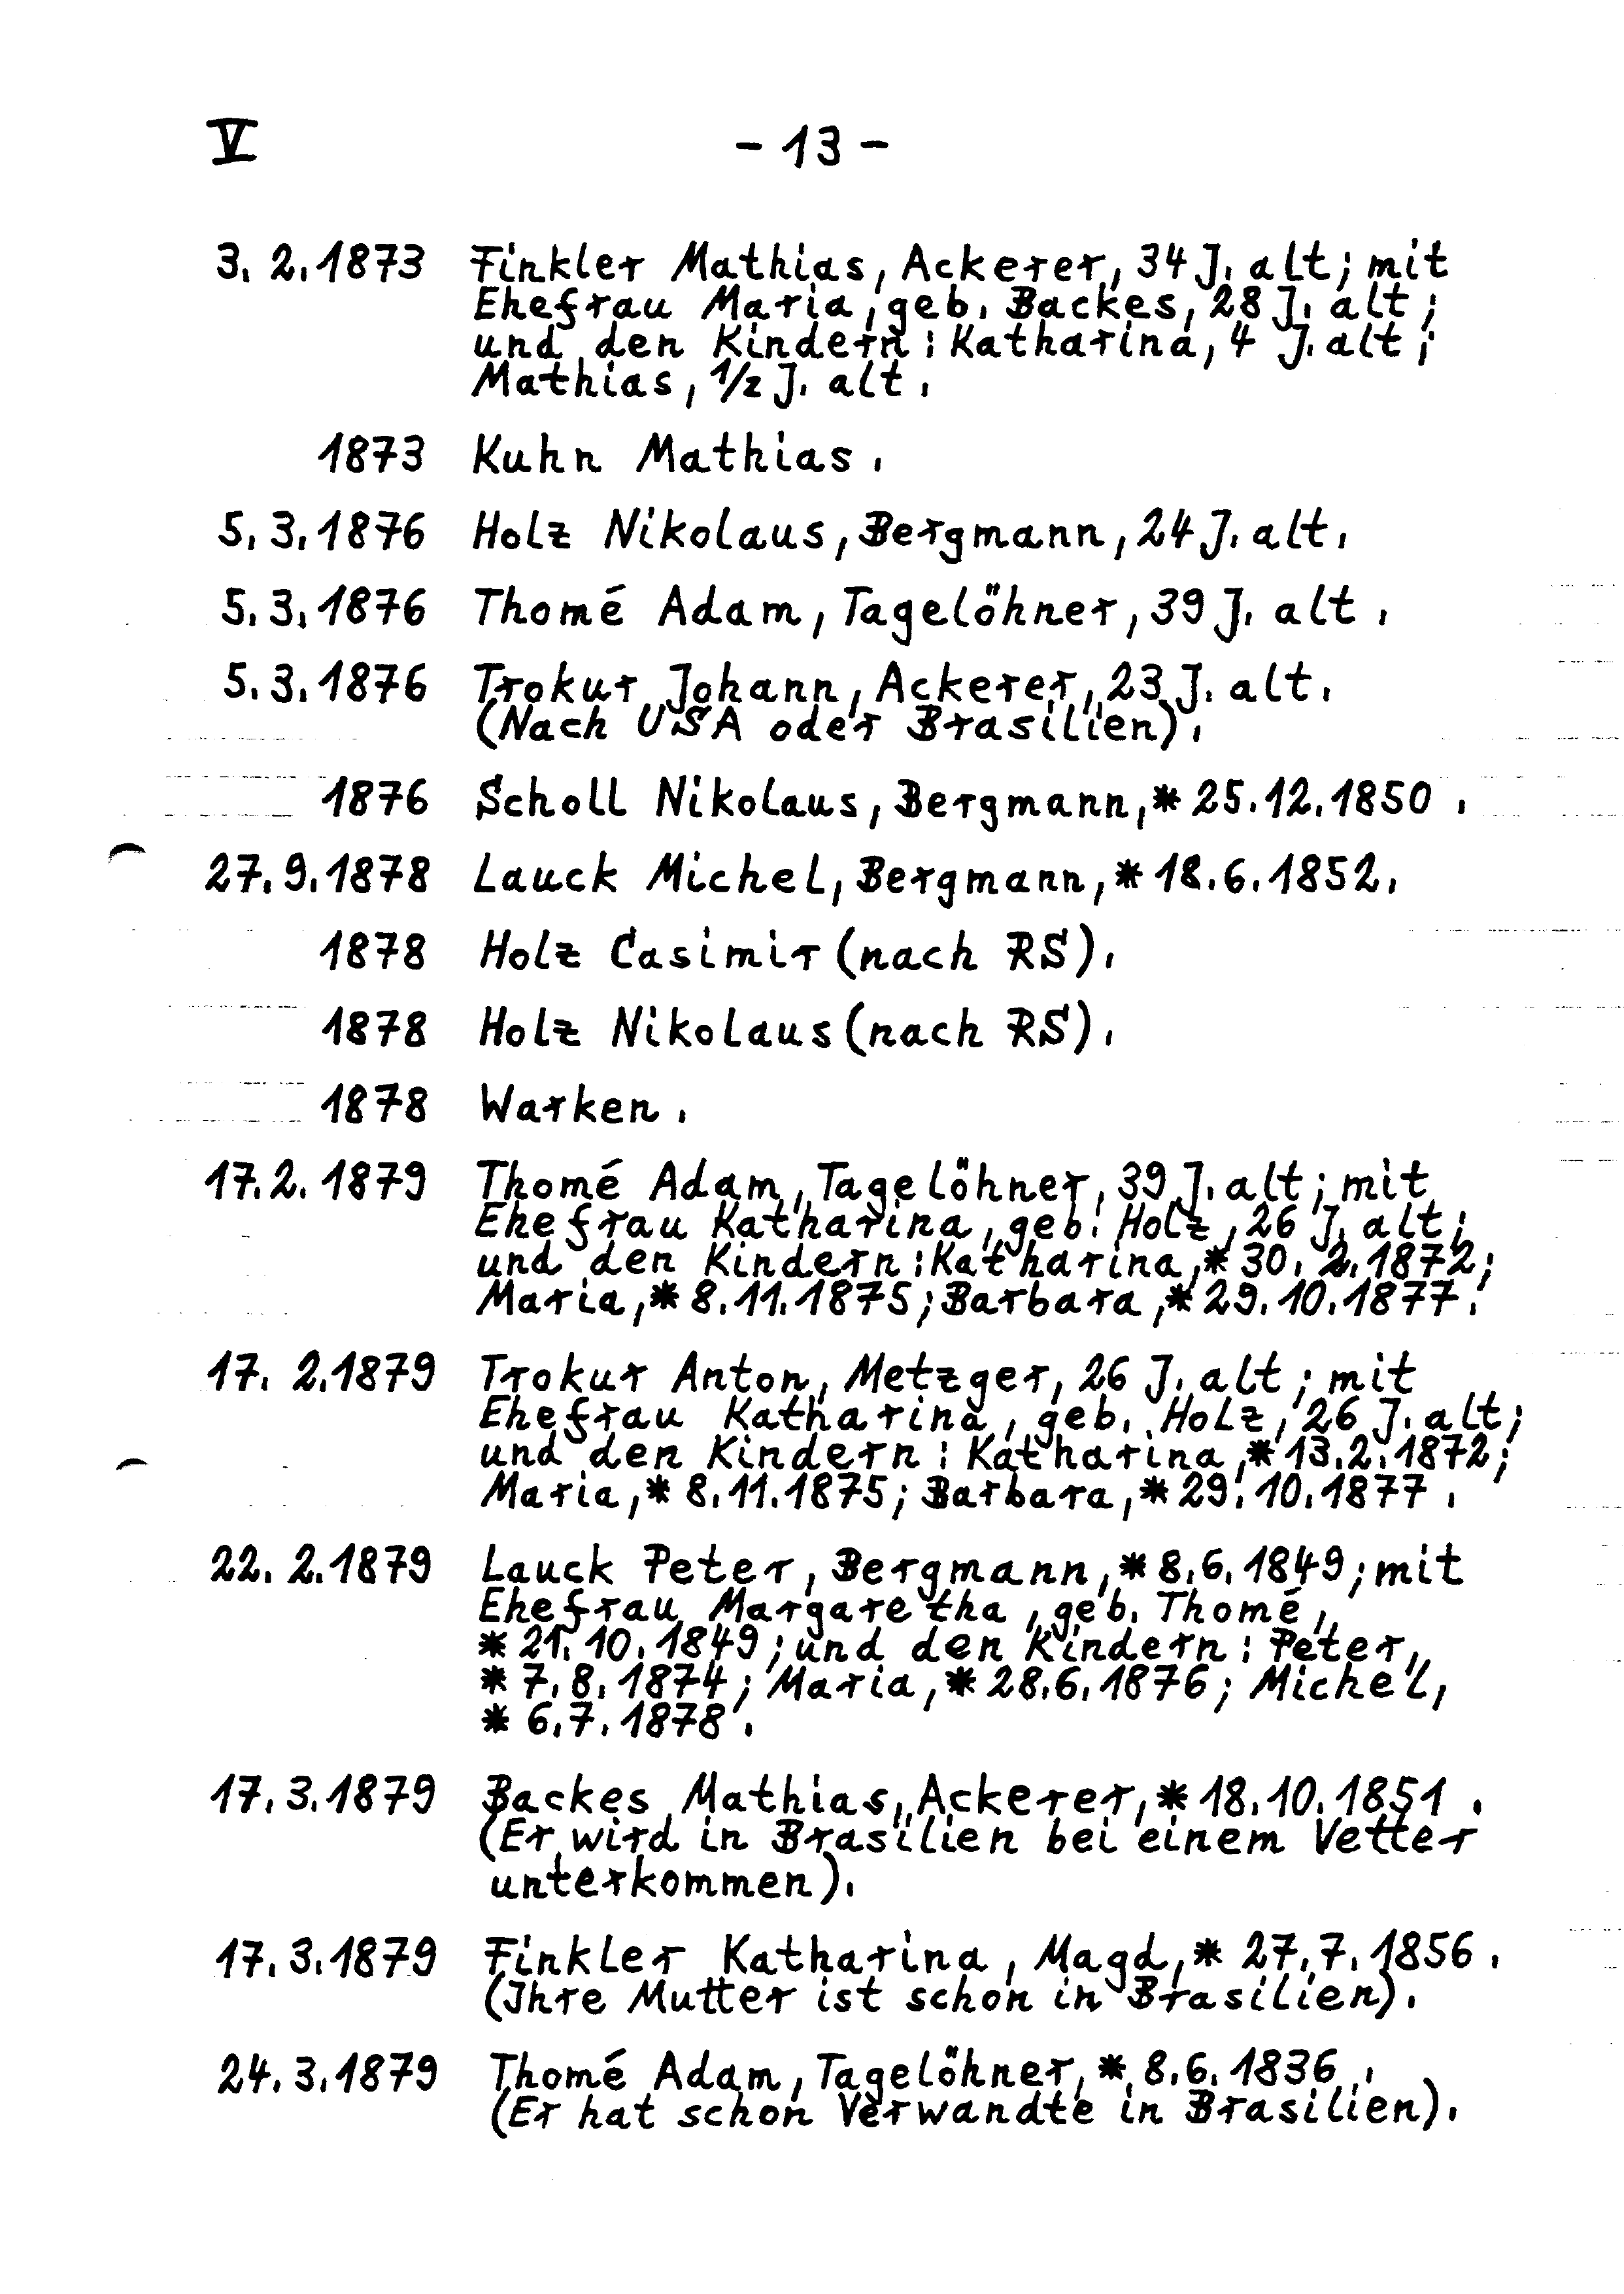 V - 13 -
3. 2. 1873 Finkler Mathias, Ackerer, 34 J. alt; mit
Ehefrau Maria, geb. Backes, 28 J. alt;
und den Kindern: Katharina, 4 J. alt;
Mathias, 1/2 J. alt.
1873 Kuhn Mathias.
5. 3. 1876 Holz Nikolaus, Bergmann, 24 J. alt.
5. 3. 1876 Thomé Adam, Tagelöhner, 39 J. alt.
5. 3. 1876 Trokur Johann, Ackerer, 23 J. alt.
(Nach USA oder Brasilien).
1876 Scholl Nikolaus, Bergmann, * 25.12.1850.
27. 9. 1878 Lauck Michel, Bergmann, * 18.6.1852.
1878 Holz Casimir (nach RS).
1878 Holz Nikolaus (nach RS).
1878 Warken.
17. 2. 1879 Thomé Adam, Tagelöhner, 39 J. alt; mit
Ehefrau Katharina, geb. Holz, 26 J. alt;
und den Kindern: Katharina, * 30. 2. 1872;
Maria, * 8.11.1875; Barbara, * 29.10.1877.
17. 2. 1879 Trokur Anton, Metzger, 26 J. alt; mit
Ehefrau Katharina, geb. Holz, 26 J. alt;
und den Kindern: Katharina, * 13.2.1872;
Maria, * 8.11.1875; Barbara, * 29.10.1877.
22. 2. 1879 Lauck Peter, Bergmann, * 8.6.1849; mit
Ehefrau Margaretha, geb. Thomé,
* 21.10.1849; und den Kindern: Peter,
* 7.8.1874; Maria, * 28.6.1876; Michel,
* 6.7.1878.
17. 3. 1879 Backes Mathias, Ackerer, * 18.10.1851.
(Er wird in Brasilien bei einem Vetter
unterkommen).
17. 3. 1879 Finkler Katharina, Magd, * 27.7.1856.
(Ihre Mutter ist schon in Brasilien).
24. 3. 1879 Thomé Adam, Tagelöhner, * 8.6.1836.
(Er hat schon Verwandte in Brasilien).